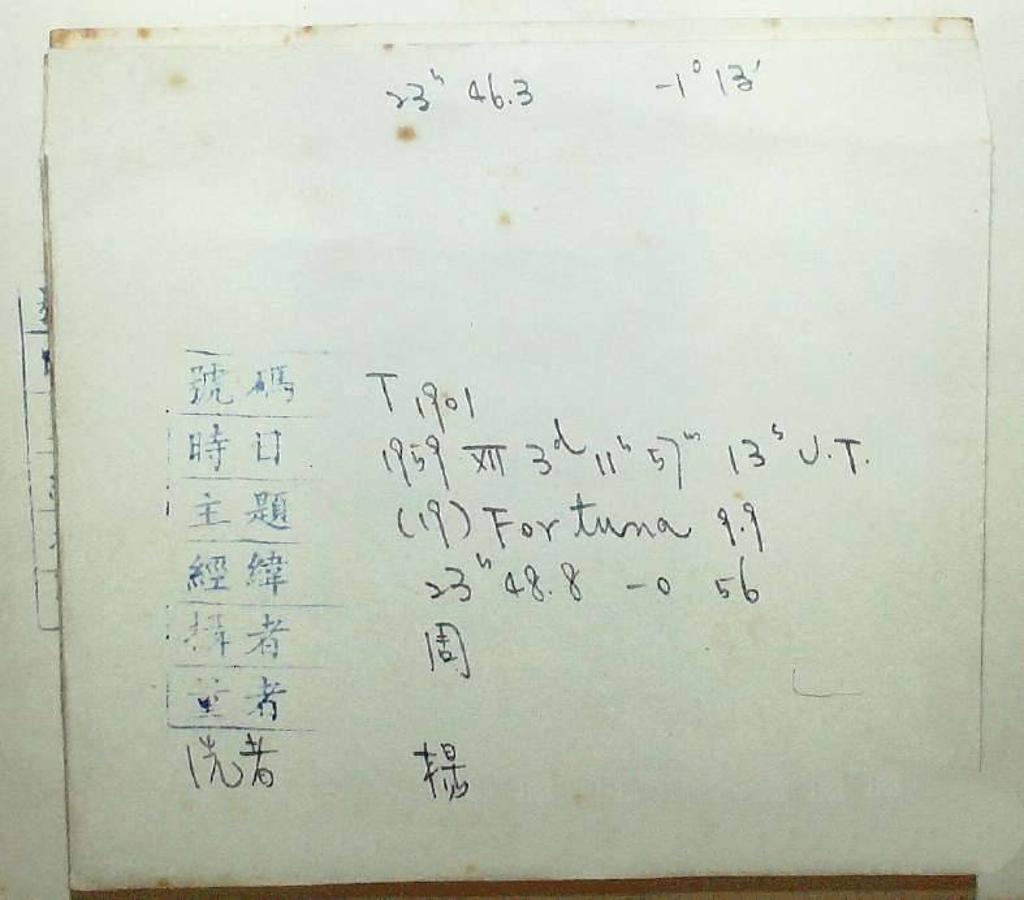 23ʰ 46.3 -1° 13′
號碼 T 1901
時日 1959 XII 3ᵈ 11ʰ 57ᵐ 13ˢ U.T.
主題 (19) Fortuna 9.9
經緯 23ʰ 48.8 -0 56
攝者 周
量者
洗者 楊